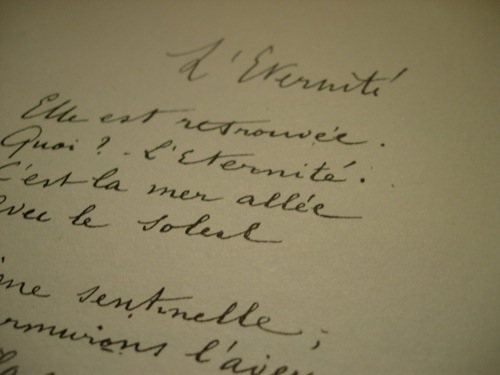 L'Eternité
Elle est retrouvée.
Quoi ? - L'Eternité.
C'est la mer allée
Avec le soleil
me sentinelle,
rmurons l'aveu